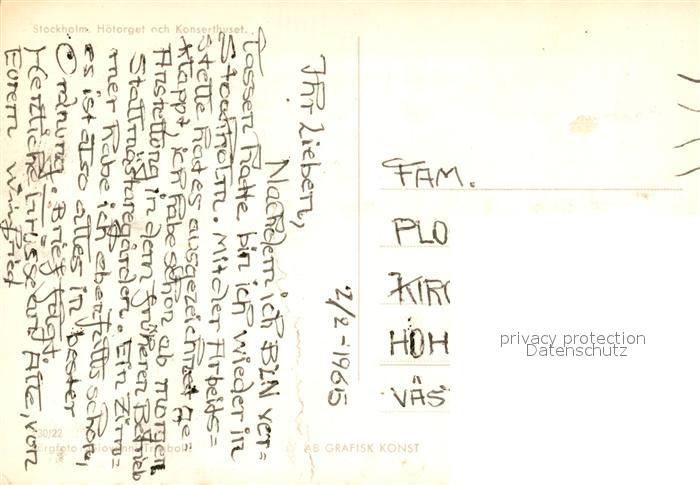 Stockholm. Hötorget och Konserthuset.
2/2-1965
Ihr Lieben,
Nachdem ich BLN ver=
lassen hatte, bin ich wieder in
Stockholm. Mit der Arbeits=
stelle hat es ausgezeichnet ge=
klappt, ich habe schon ab morgen
Anstellung in dem früheren Betrieb
Stallmästaregården. Ein Zim=
mer habe ich ebenfalls schon,
es ist also alles in bester
Ordnung. Brief folgt.
Herzliche Grüsse and Alle, von
Eurem Winfried
FAM.
PLO
KIRC
HOH
VÄS
30/22
AB GRAFISK KONST
privacy protection
Datenschutz